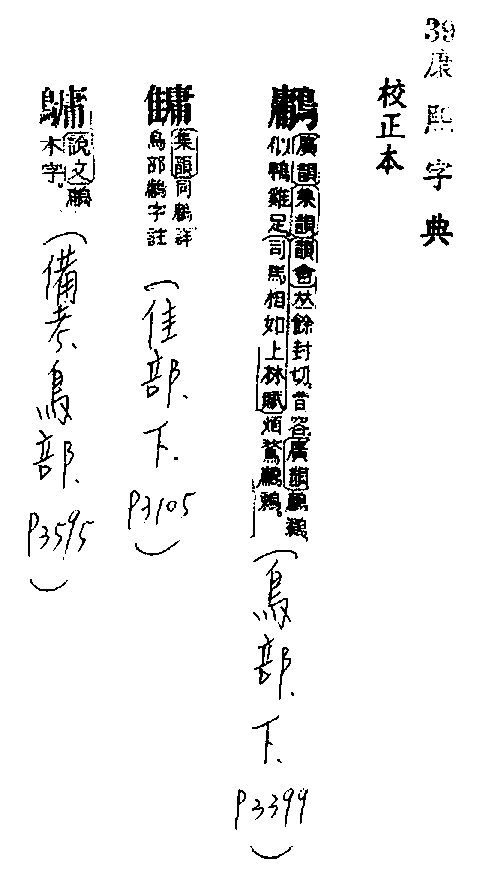 39康熙字典
校正本
鷛
廣韻集韻韻會𠀤餘封切音容廣韻鷛
似鴨雞足司馬相如上林賦煩鶩鷛
(鳥部.下.P3399)
集韻同鷛詳
鳥部鷛字註
(隹部.下.P3105)
說文鷛
本字。
(備考鳥部.P3595)